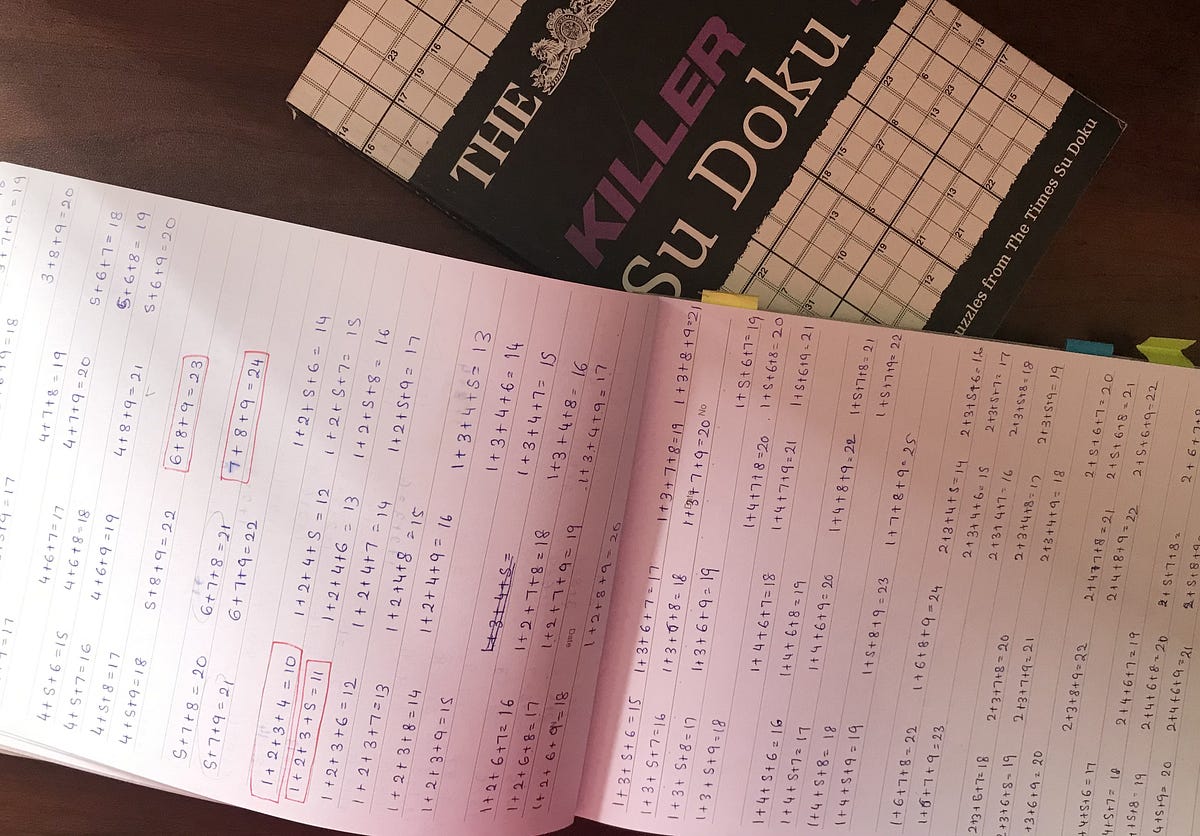 THE
KILLER
Su Doku
uzzles from The Times Su Doku
3+8+9=20
4+5+6=15 4+6+7=17 4+7+8=19
4+5+7=16 4+6+8=18 4+7+9=20 5+6+7=18
4+5+8=17 4+6+9=19 4+8+9=21 5+6+8=19
4+5+9=18 5+8+9=22 5+6+9=20
5+7+8=20 6+7+8=21 6+8+9=23
5+7+9=21 6+7+9=22 7+8+9=24
1+2+3+4=10 1+2+4+5=12 1+2+5+6=14
1+2+3+5=11 1+2+4+6=13 1+2+5+7=15
1+2+3+6=12 1+2+4+7=14 1+2+5+8=16
1+2+3+7=13 1+2+4+8=15 1+2+5+9=17
1+2+3+8=14 1+2+4+9=16
1+2+3+9=15
1+3+4+5=13
1+2+6+7=16 1+3+4+5= 1+3+4+6=14
1+2+6+8=17 1+2+7+8=18 1+3+4+7=15
1+2+6+9=18 1+2+7+9=19 1+3+4+8=16
Date 1+2+8+9=20 1+3+4+9=17
1+3+5+6=15 1+3+6+7=17 1+3+7+8=19 1+3+8+9=21
1+3+5+7=16 1+3+6+8=18 1+3+7+9=20 No
1+3+5+8=17 1+3+6+9=19
1+3+5+9=18
1+5+6+7=19
1+4+5+6=16 1+4+6+7=18 1+4+7+8=20 1+5+6+8=20
1+4+5+7=17 1+4+6+8=19 1+4+7+9=21 1+5+6+9=21
1+4+5+8=18 1+4+6+9=20 1+4+8+9=22 1+5+7+8=21
1+4+5+9=19 1+5+8+9=23 1+5+7+9=22
1+6+7+8=22 1+6+8+9=24 1+7+8+9=25
1+6+7+9=23
2+3+4+5=14 2+3+5+6=16
2+3+6+7=18 2+3+7+8=20 2+3+4+6=15 2+3+5+7=17
2+3+6+8=19 2+3+7+9=21 2+3+4+7=16 2+3+5+8=18
+3+6+9=20 2+3+4+8=17 2+3+5+9=19
2+3+8+9=22 2+3+4+9=18
+4+5+6=17 2+4+6+7=19 2+4+7+8=21 2+5+6+7=20
+5+7=18 2+4+6+8=20 2+4+8+9=22 2+5+6+8=21
+5+8=19 2+4+6+9=21 2+5+7+8= 2+5+6+9=22
+5+9=20 2+5+8+9=